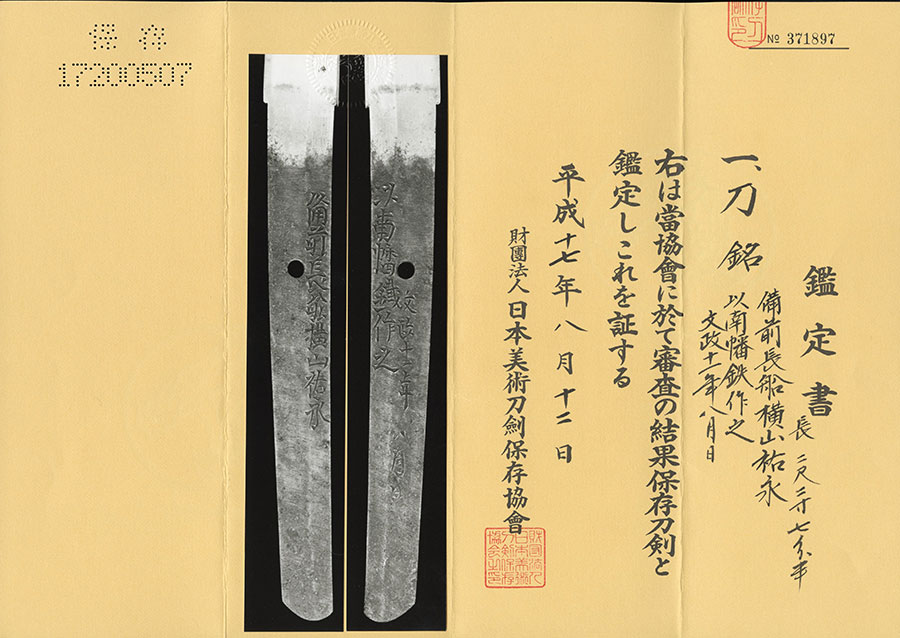 鑑定書
一、刀 銘 備前長船横山祐永
以南幡鉄作之
文政十一年八月日
長 二尺三寸七分半
右は當協會に於て審査の結果保存刀剣と
鑑定しこれを証する
平成十七年八月十二日
財團法人 日本美術刀劍保存協會
№ 371897
保存
17200507
備前長船横山祐永
以南幡鐵作之